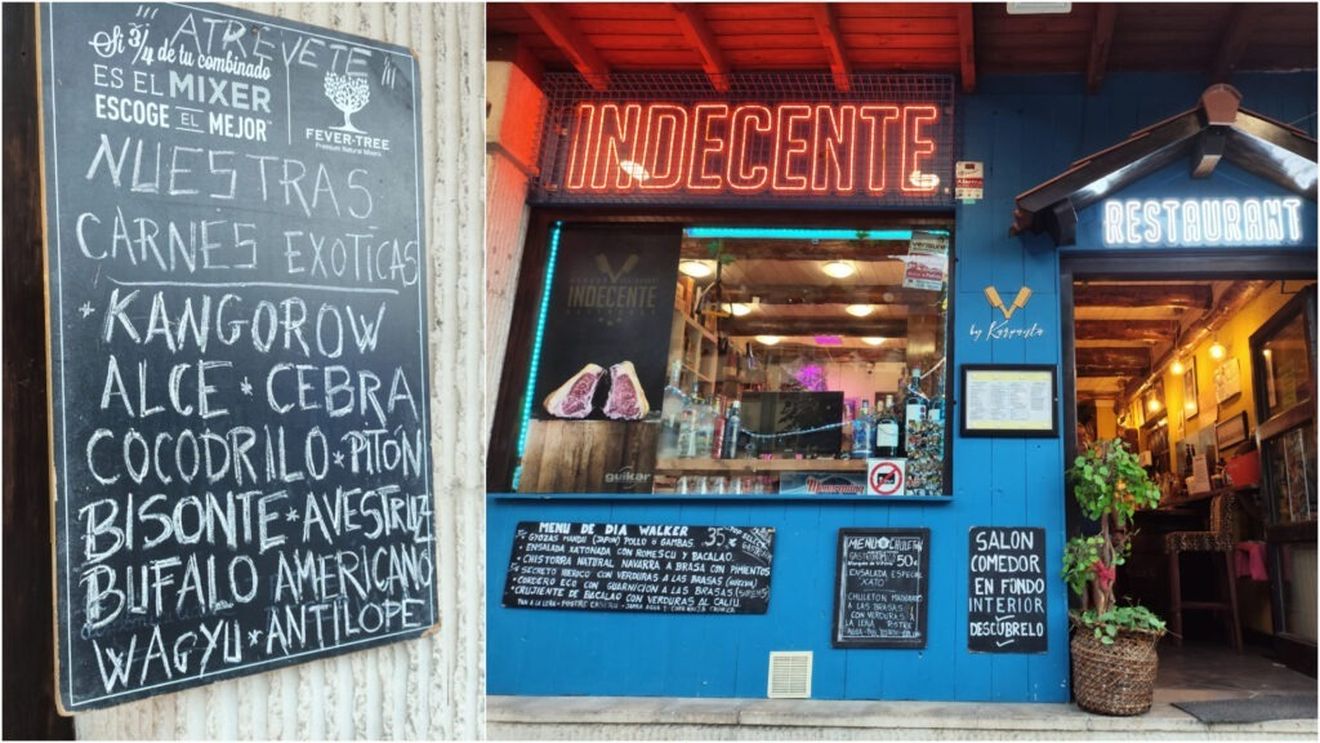 ¡¡¡ATREVETE!!!
Si 3/4 de tu combinado
ES EL MIXER
ESCOGE EL MEJOR
FEVER-TREE
Premium Natural Mixers
NUESTRAS
CARNES EXOTICAS
* KANGOROW
ALCE * CEBRA
COCODRILO * PITÓN
BISONTE * AVESTRUZ
BUFALO AMERICANO
WAGYU * ANTILOPE
INDECENTE
RESTAURANT
INDECENTE
guikar
verisure
by Karpanta
MENU DE DIA WALKER 35
GYOZAS MANDU (JAPON) POLLO O GAMBAS
• ENSALADA XATONADA CON ROMESCU Y BACALAO
• CHISTORRA NATURAL NAVARRA A BRASA CON PIMIENTOS
• SECRETO IBERICO CON VERDURAS A LAS BRASAS
• CORDERO ECO CON GUARNICION A LAS BRASAS
• CRUJIENTE DE BACALAO CON VERDURAS AL CALIU
MENU CHULETAN
50€
ENSALADA ESPECIAL
XATÓ
CHULETON MADURADO
A LAS BRASAS
CON VERDURAS A
LA LEÑA POSTRE
SALON
COMEDOR
EN FONDO
INTERIOR
DESCÚBRELO